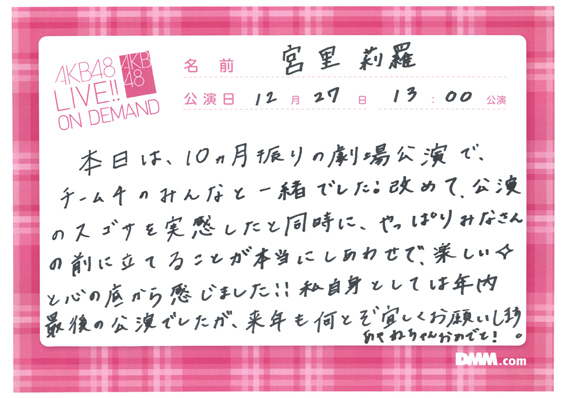 AKB48
LIVE!!
ON DEMAND
AKB
48
名前 宮里莉羅
公演日 12月27日 13:00公演
本日は、10ヵ月振りの劇場公演で、
チーム4のみんなと一緒でした！改めて、公演
のスゴサを実感したと同時に、やっぱりみなさん
の前に立てることが本当にしあわせで、楽しい☆
と心の底から感じました!!私自身としては年内
最後の公演でしたが、来年も何とぞ宜しくお願いします。
あやねちゃんおめでと!
DMM.com